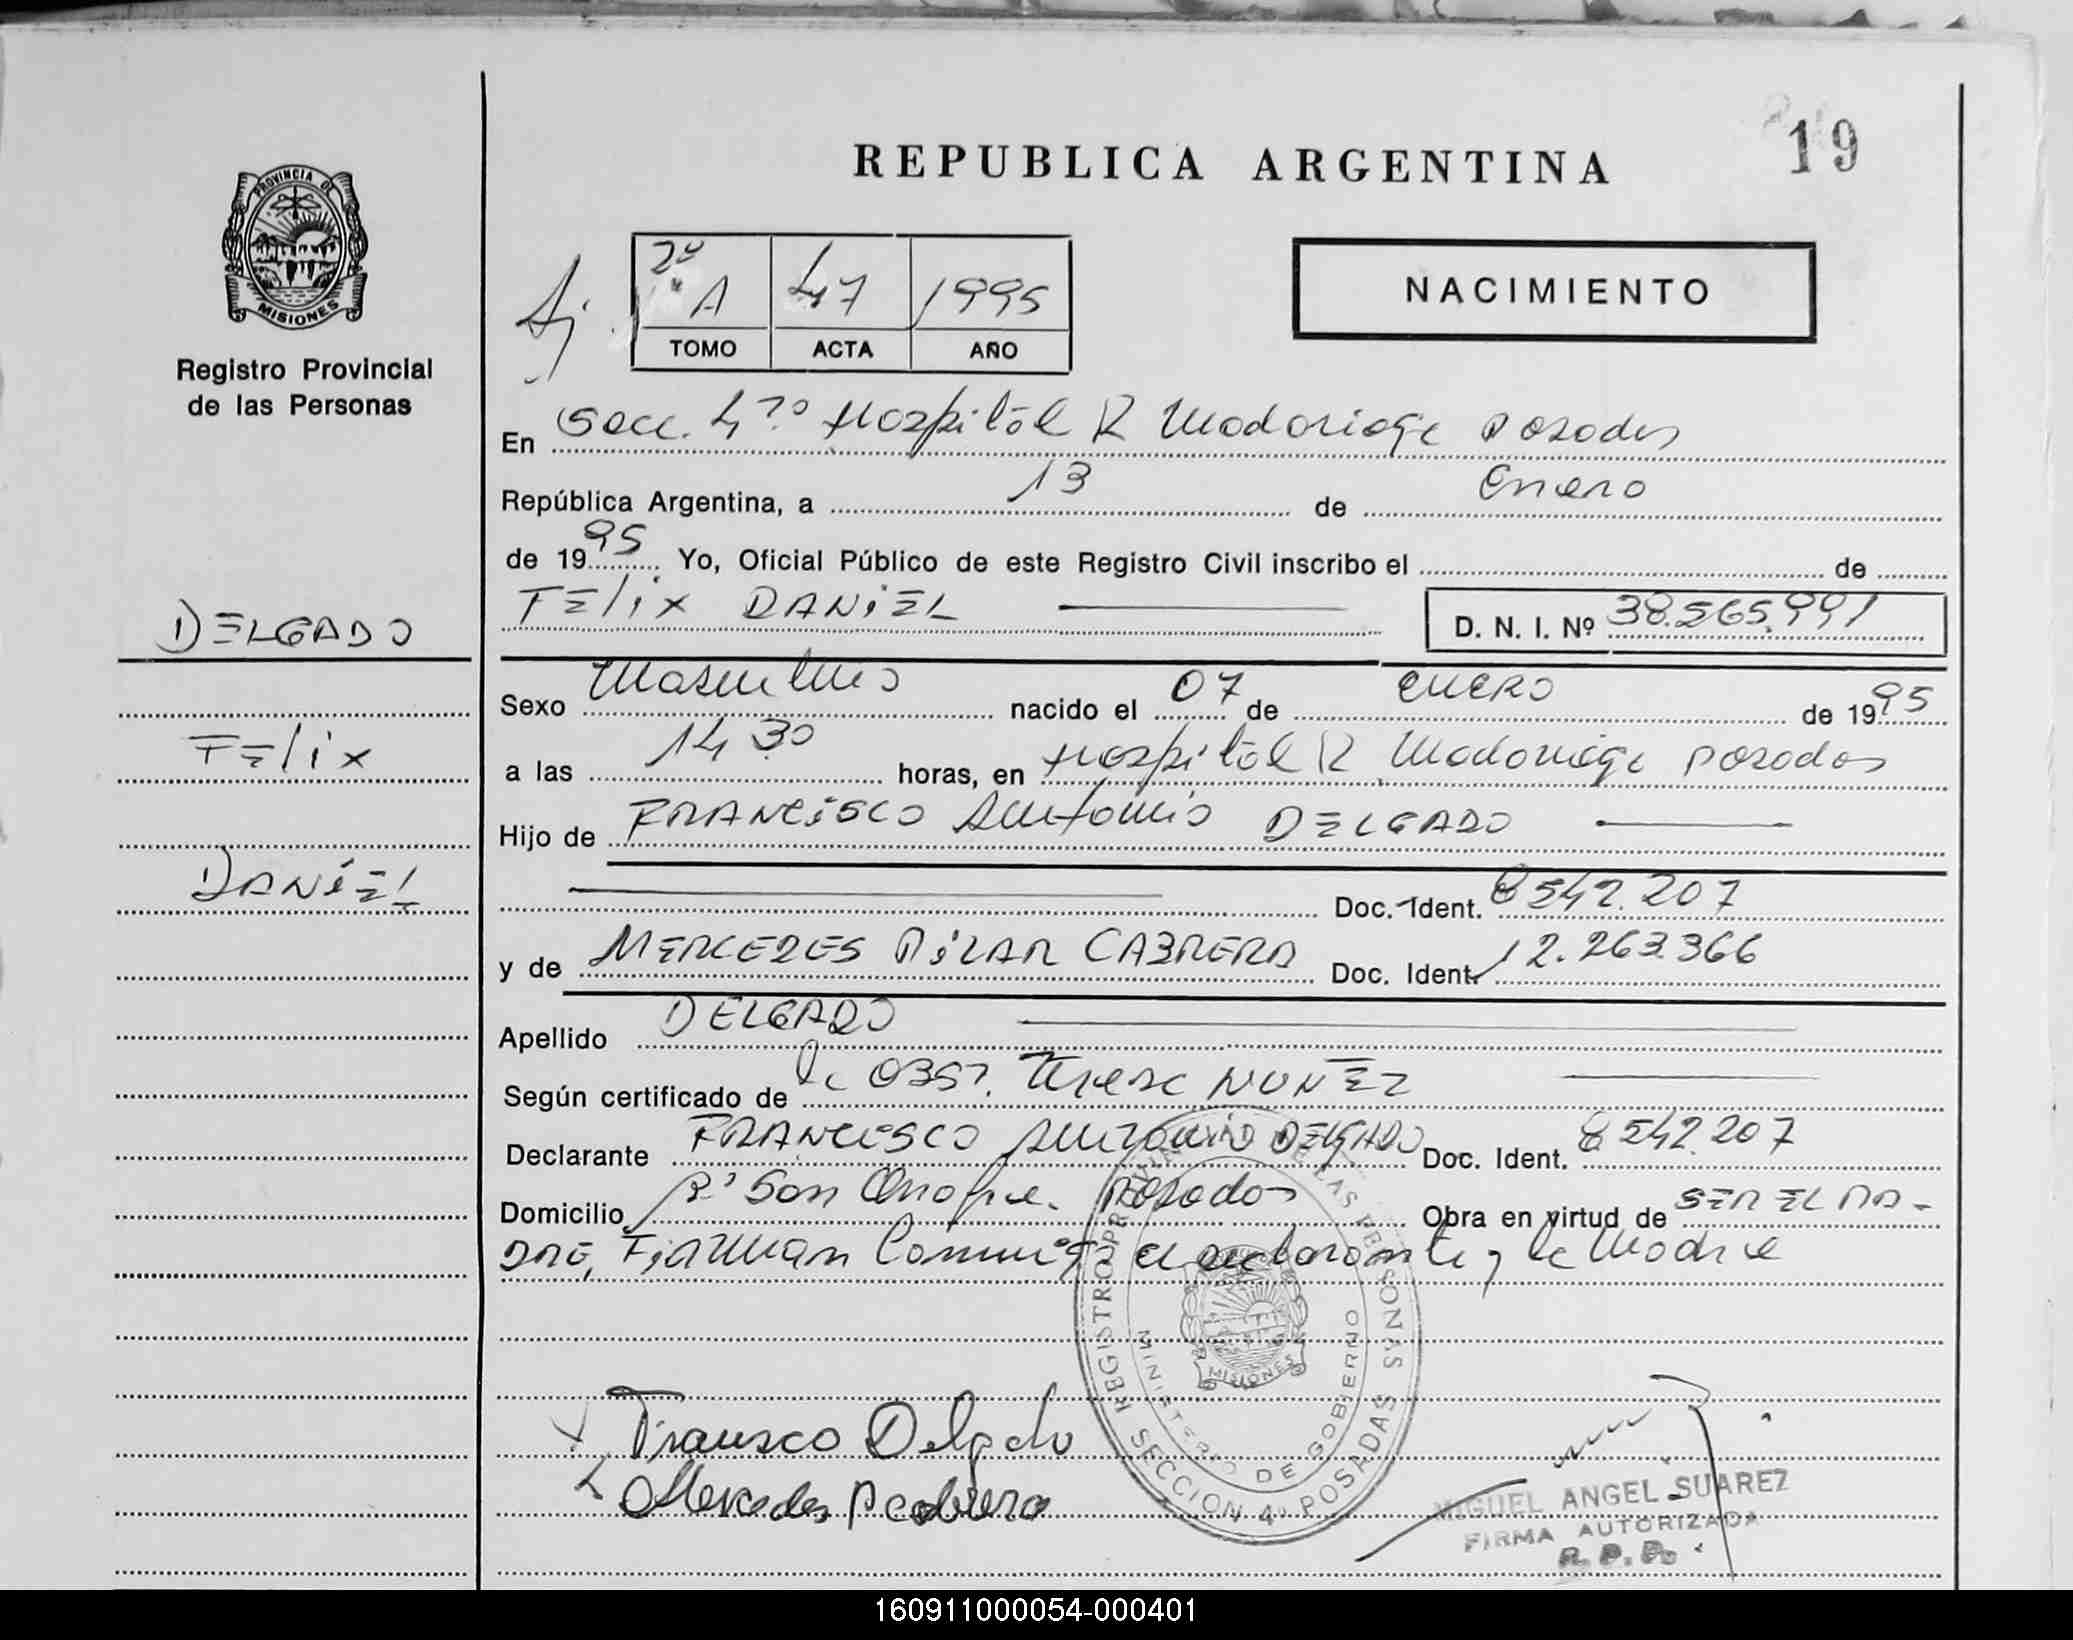 REPUBLICA ARGENTINA
19
PROVINCIA DE
MISIONES
Registro Provincial
de las Personas
2º A 47 1995
TOMO ACTA AÑO
NACIMIENTO
En Secc. 4ta Hospital R Madariaga Posadas
República Argentina, a 13 de Enero
de 1995 Yo, Oficial Público de este Registro Civil inscribo el de
FELIX DANIEL
D. N. I. Nº 38.565.991
DELGADO
Felix
DANIEL
Sexo Masculino nacido el 07 de ENERO de 1995
a las 14 30 horas, en Hospital R Madariaga Posadas
Hijo de FRANCISCO Antonio DELGADO
Doc. Ident. 8 542.207
y de MERCEDES PILAR CABRERA Doc. Ident. 12.263.366
Apellido DELGADO
Según certificado de la OBST. Teresa NUÑEZ
Declarante FRANCISCO Antonio DELGADO Doc. Ident. 8 542.207
Domicilio Bº San Onofre. Posadas Obra en virtud de SER EL PA-
DRE, Firman Conmigo el declarante y la Madre
REGISTRO PROVINCIAL DE LAS PERSONAS
MINISTERIO DE GOBIERNO
MISIONES
SECCION 4º POSADAS
Francisco Delgado
Mercedes P Cabrera
MIGUEL ANGEL SUAREZ
FIRMA AUTORIZADA
R. P. P.
160911000054-000401